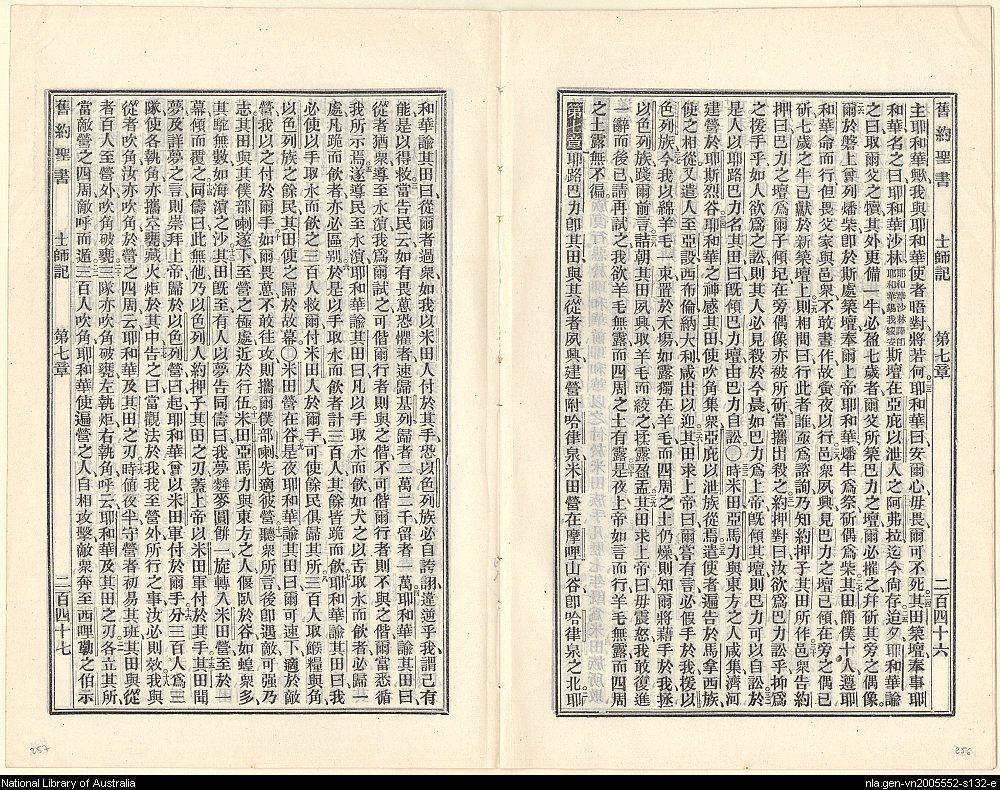 舊約聖書 士師記 第七章 二百四十六
主耶和華歟我與耶和華使者晤對將若何耶和華曰安爾心毋畏爾可不死其田築壇奉事耶
和華名之曰耶和華沙林耶和華沙林譯即耶和華錫我綏安斯壇在亞庇以泄人之阿弗拉迄今尚存迨夕耶和華諭
之曰取爾父之犢其外更備一牛必盈七歲者爾父所築巴力之壇爾必摧之并斫其旁之偶像
爾於磐上曾列燔柴即於斯處築壇奉爾上帝耶和華燔牛爲祭斫偶爲柴其田簡僕十人遵耶
和華命而行但畏父家與邑衆不敢晝作故夤夜以行邑衆夙興見巴力之壇已傾在旁之偶已
斫七歲之牛已獻於新築壇上則相問曰行此者誰耶爲諮詢乃知約押子其田所作邑衆告約
押曰巴力之壇爲爾子傾圮在旁偶像亦被所斫當攜出殺之約押對曰汝欲爲巴力訟乎抑爲
之援手乎如人欲爲之訟則其人必見殺於今晨如巴力爲上帝既傾其壇則巴力可以自訟於
是人以耶路巴力名其田曰既傾巴力壇由巴力自訟〇時米田亞馬力與東方之人咸集濟河
建營於耶斯烈谷耶和華之神感其田使吹角集衆亞庇以泄族從焉遣使者遍告於馬拿西族
使之相從又遣人至亞設西布倫納大利咸出以迎其田求上帝曰爾嘗有言必假手於我援以
色列族今我以綿羊毛一束置於禾場如露獨在羊毛而四周之土仍燥則知爾將藉手於我拯
以色列族踐爾前言詰朝其田夙興取羊毛而絞之揉露盈盂其田求上帝曰毋震怒以我敢復進
一辭而後已請再試之我欲羊毛無露而四周之土有露是夜上帝如言而行羊毛無露而四周
之土露無不徧
第七章 耶路巴力即其田與其從者夙興建營附哈律泉米田營在摩哩山谷即哈律泉之北耶
256
和華諭其田曰從爾者過衆如我以米田人付於其手恐以色列族必自誇詡違逆乎我謂己有
能是以得救當告民云如有畏葸恐懼者速歸基列歸者二萬二千留者一萬耶和華諭其田曰
從者猶衆導至水濱我爲爾試之可偕爾行者則與之偕不可偕爾行者則不與之偕爾當悉循
我所示焉遂導民至水濱耶和華諭其田曰凡以手取水而飲如犬之以舌取水而飲者必歸一
處凡跪而飲者亦必區別於是以手取水而飲者計三百人其餘皆跪而飲耶和華諭其田曰我
必使以手取水而飲之三百人救爾付米田人於爾手可使餘民俱歸其所三百人取餱糧與角
以色列族之餘民其田使之歸於故幕〇米田營在谷是夜耶和華諭其田曰爾可速下適於敵
營我以之付於爾手如爾畏葸不敢往攻則攜爾僕部喇先適彼營聽衆所言後即遇敵可強乃
志其田與其僕部喇遂下至營之極處近於行伍米田亞馬力與東方之人偃臥於谷如蝗衆多
其駝無數如海濱之沙其田既至有人以夢告同儔曰我夢麰麥圓餅一旋轉入米田營至於一
幕傾而覆之同儔曰此無他乃以色列人約押子其田之刃蓋上帝以米田軍付於其手其田聞
夢及詳夢之言則崇拜上帝歸於以色列營曰起耶和華曾以米田軍付於爾手分三百人爲三
隊使各執角亦攜空甕藏火炬於其中告之曰當觀法於我我至營外所行之事汝必則效我與
從者吹角汝亦吹角於營之四周云耶和華及其田之刃時値夜半守營者初易其班其田與從
者百人至營外吹角破甕三隊亦吹角破甕左執炬右執角呼云耶和華及其田之刃各立其所
當敵營之四周敵呼而遁三百人吹角耶和華使遍營之人自相攻擊敵衆奔至西哩勒之伯示
舊約聖書 士師記 第七章 二百四十七
257
National Library of Australia
nla.gen-vn2005552-s132-e